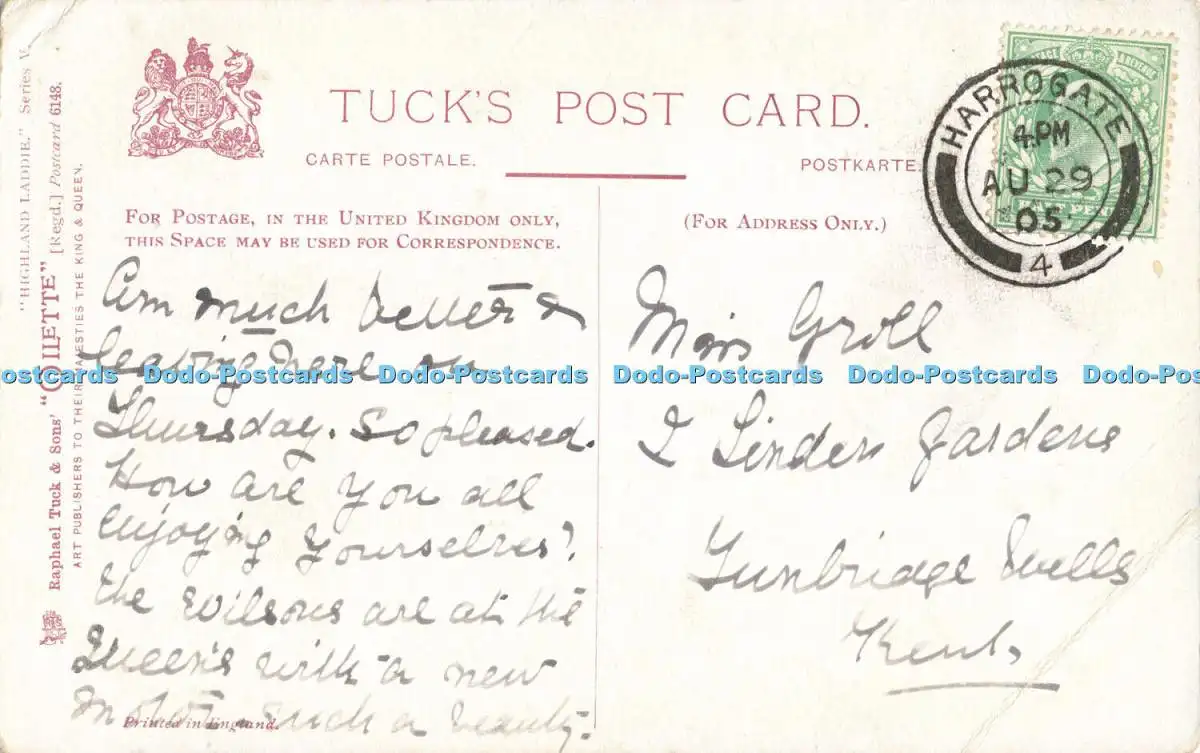 TUCK'S POST CARD.
CARTE POSTALE.
POSTKARTE
FOR POSTAGE, IN THE UNITED KINGDOM ONLY,
THIS SPACE MAY BE USED FOR CORRESPONDENCE.
(FOR ADDRESS ONLY.)
"HIGHLAND LADDIE." Series
Raphael Tuck & Sons' "OILETTE" [Regd.] Postcard 6148.
ART PUBLISHERS TO THEIR MAJESTIES THE KING & QUEEN.
HARROGATE
4.PM
AU 29
05
4
Am much better &
leaving here on
Thursday. So pleased.
How are you all
enjoying yourselves?
The Wilsons are at the
Queen's with a new
motor such a beauty.
Printed in England.
Miss Groll
2 Linden Gardens
Tunbridge Wells
Kent
ostcards Dodo-Postcards Dodo-Postcards Dodo-Postcards Dodo-Postcards Dodo-Postc